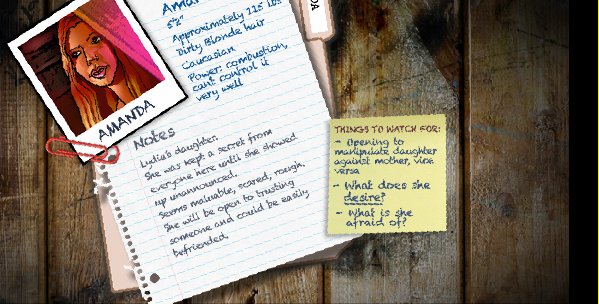 Aman
5'2"
Approximately 115 lbs
Dirty Blonde hair
Caucasian
Power: combustion,
can't control it
very well
DA
AMANDA
Notes
Lydia's daughter.
She was kept a secret from
everyone here until she showed
up unannounced.
Seems maluable, scared, rough.
She will be open to trusting
someone and could be easily
befriended.
THINGS TO WATCH FOR:
- Opening to
manipulate daughter
against mother, vice
versa
- What does she
desire?
- What is she
afraid of?